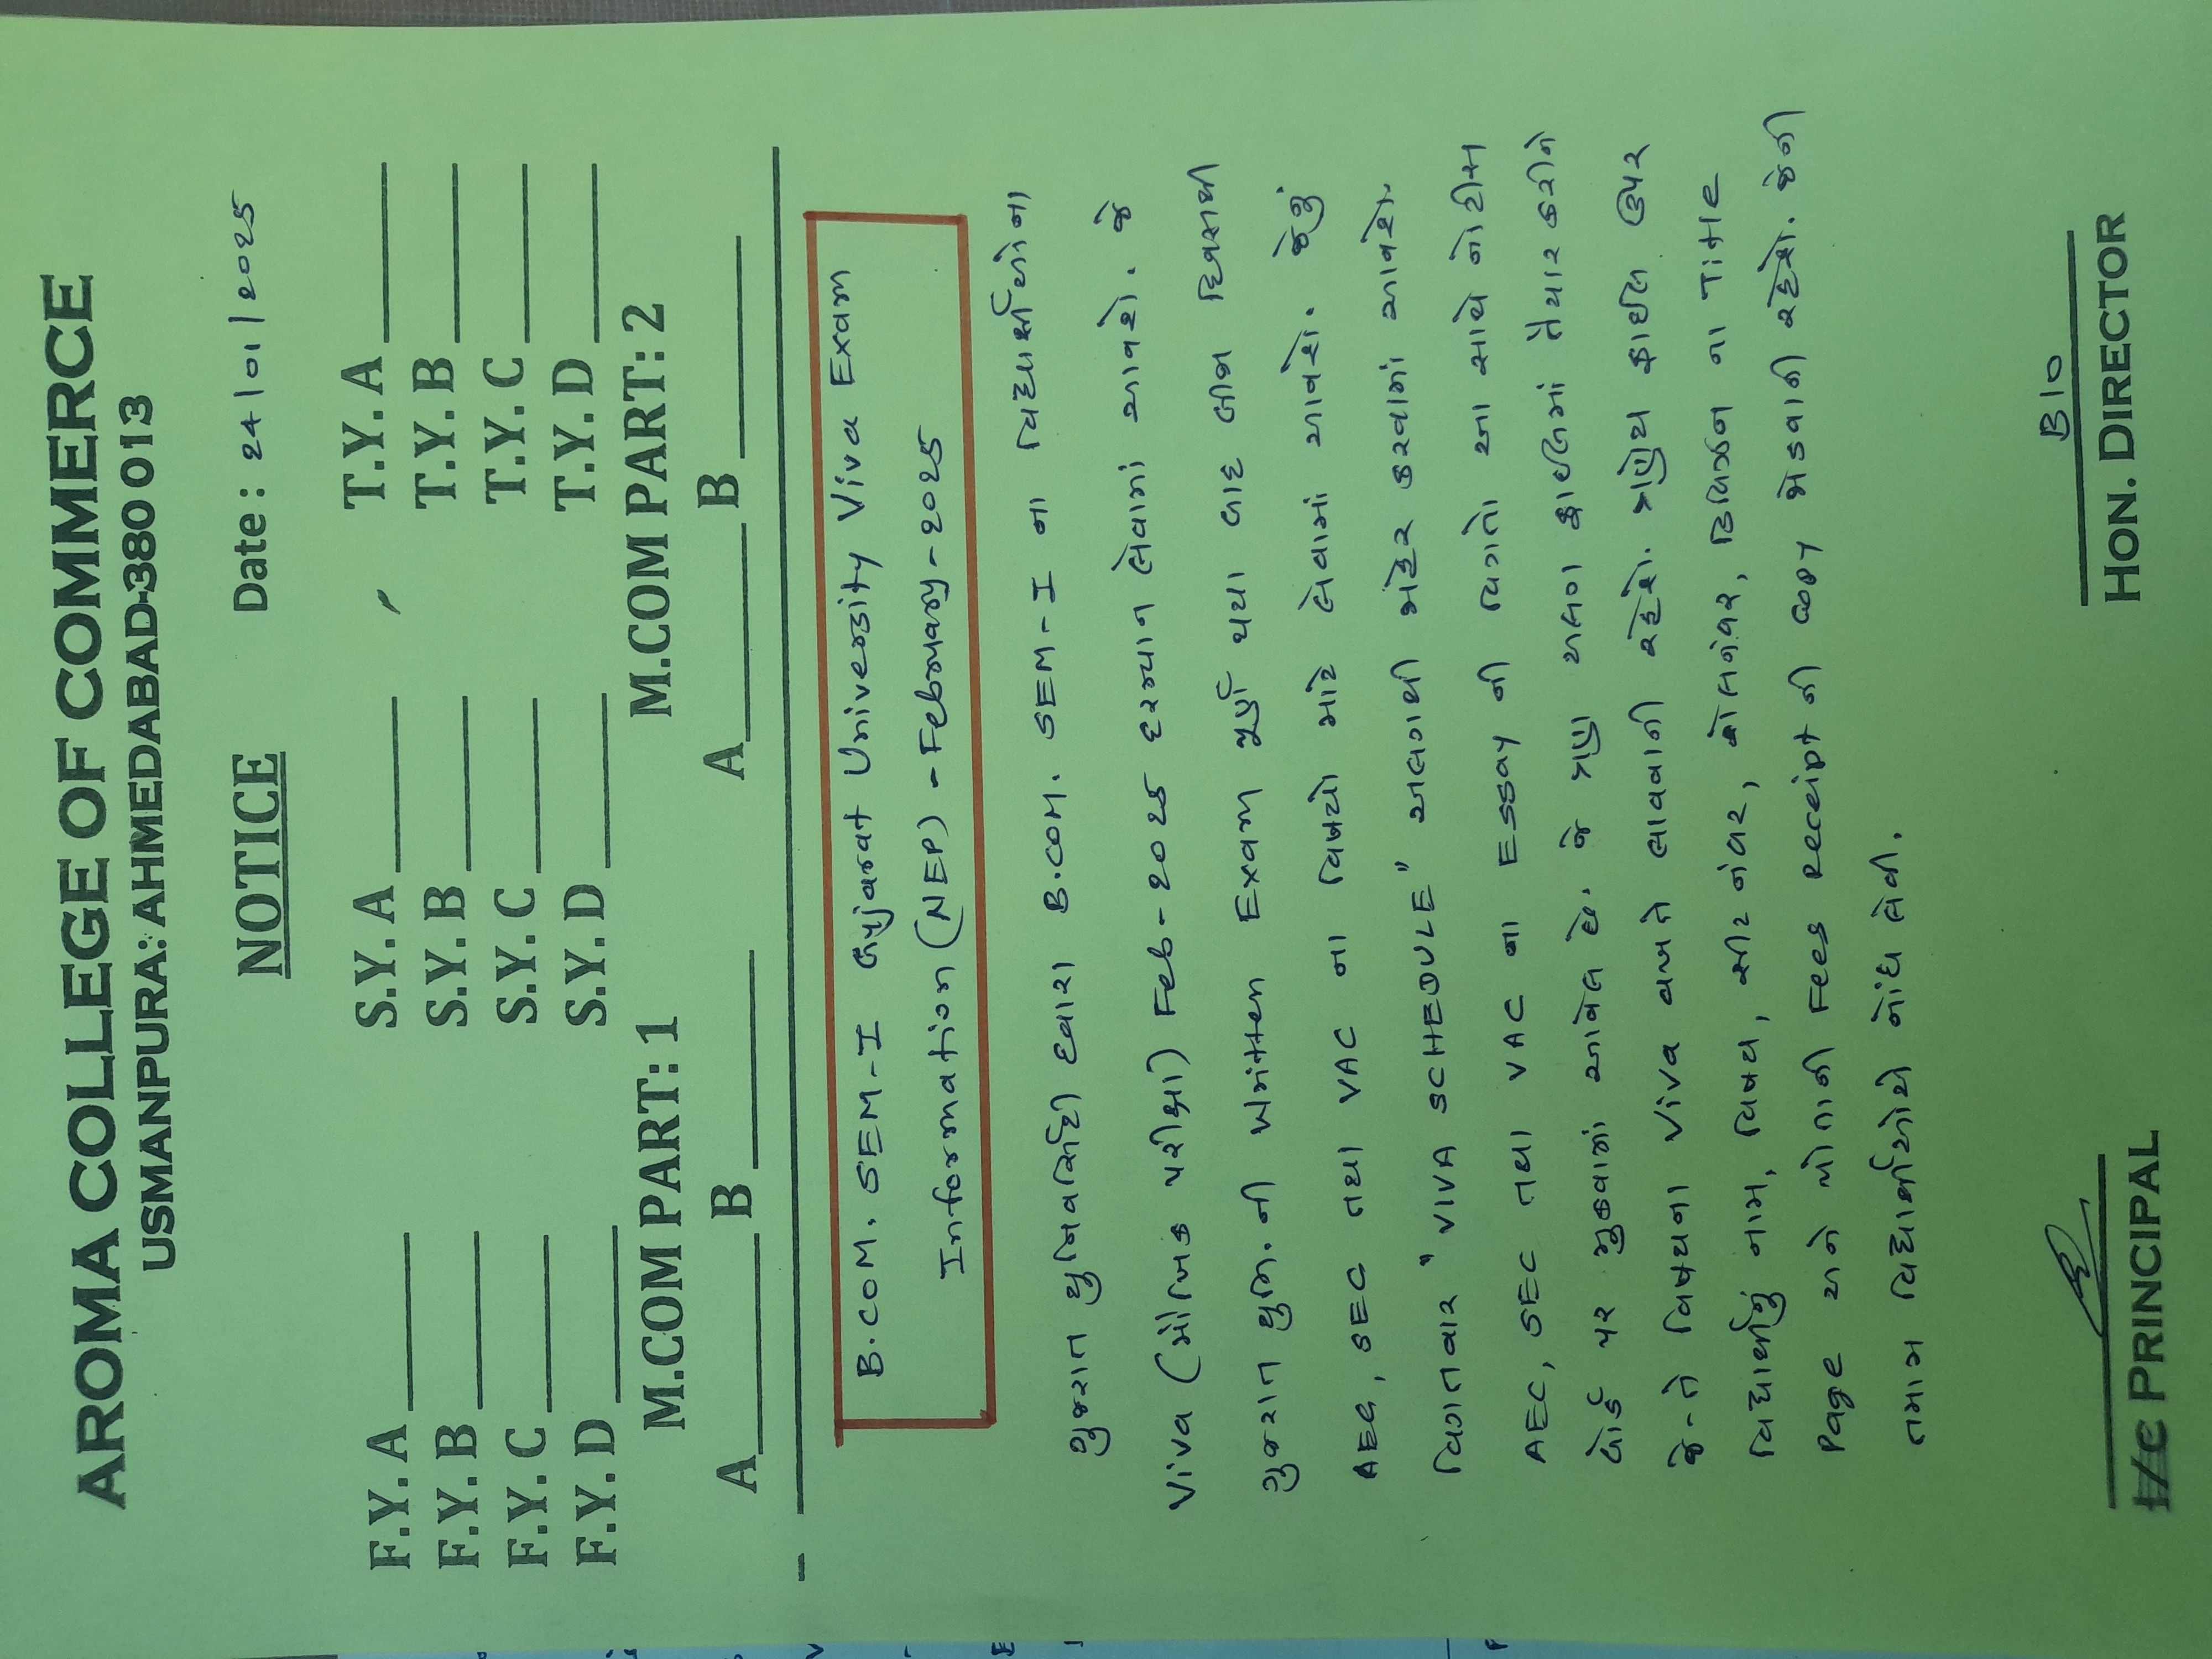 AROMA COLLEGE OF COMMERCE
USMANPURA: AHMEDABAD-380 013
NOTICE Date: 24/01/2025
F.Y. A S.Y. A T.Y. A
F.Y. B S.Y. B T.Y. B
F.Y. C S.Y. C T.Y. C
F.Y. D S.Y. D T.Y. D
M.COM PART: 1 M.COM PART: 2
A B A B
B.COM. SEM-I Gujarat University Viva Exam
Information (NEP) - February-2025
ગુજરાત યુનિવર્સિટી દ્વારા B.COM. SEM-I ના વિદ્યાર્થીઓના
Viva (મૌખિક પરીક્ષા) Feb-2025 દરમ્યાન લેવામાં આવશે. જે
ગુજરાત યુનિ. ની Written Exam પૂર્ણ થયા બાદ બીજા દિવસથી
AEC, SEC તથા VAC ના વિષયો માટે લેવામાં આવશે. જેનું
વિગતવાર "VIVA SCHEDULE" અલગથી જાહેર કરવામાં આવશે.
AEC, SEC તથા VAC ના Essay ની વિગતો આ સાથે નોટીસ
બોર્ડ પર મુકવામાં આવેલ છે. જે ત્રણ અલગ ફાઈલમાં તૈયાર કરીને
જે-તે વિષયના Viva વખતે લાવવાની રહેશે. ત્રણેય ફાઈલ ઉપર
વિદ્યાર્થીનું નામ, વિષય, સીટ નંબર, રોલનંબર, ડિવિઝન ના Title
Page અને પોતાની Fees Receipt ની copy જોડવાની રહેશે. જેની
તમામ વિદ્યાર્થીઓએ નોંધ લેવી.
B10
I/C PRINCIPAL HON. DIRECTOR